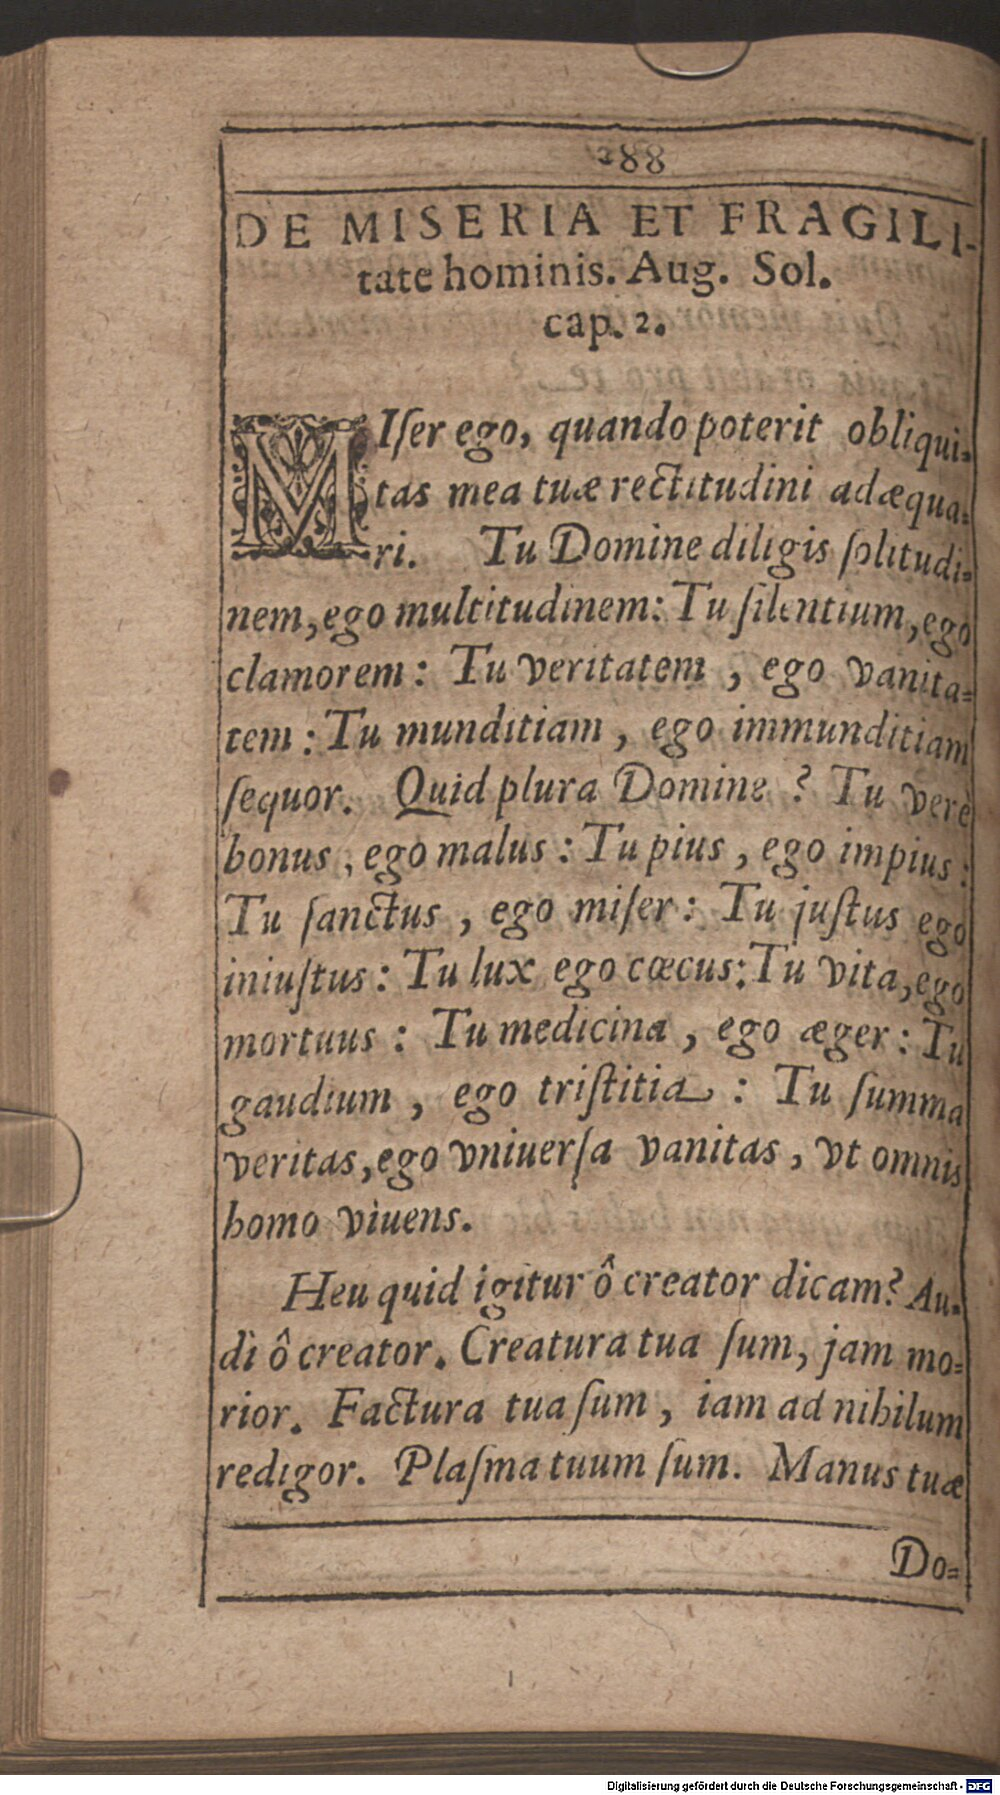 288
DE MISERIA ET FRAGILI-
tate hominis. Aug. Sol.
cap. 2.
MIſer ego, quando poterit obliqui-
tas mea tuæ rectitudini adæqua-
ri. Tu Domine diligis ſolitudi-
nem, ego multitudinem: Tu ſilentium, ego
clamorem: Tu veritatem, ego vanita-
tem: Tu munditiam, ego immunditiam
ſequor. Quid plura Domine? Tu verè
bonus, ego malus: Tu pius, ego impius:
Tu ſanctus, ego miſer: Tu juſtus ego
iniuſtus: Tu lux ego cœcus: Tu vita, ego
mortuus: Tu medicina, ego æger: Tu
gaudium, ego triſtitia: Tu ſumma
veritas, ego vniuerſa vanitas, vt omnis
homo viuens.
Heu quid igitur ô creator dicam? Au-
di ô creator. Creatura tua ſum, jam mo-
rior. Factura tua ſum, iam ad nihilum
redigor. Plaſma tuum ſum. Manus tuæ
Do-
Digitalisierung gefördert durch die Deutsche Forschungsgemeinschaft - DFG